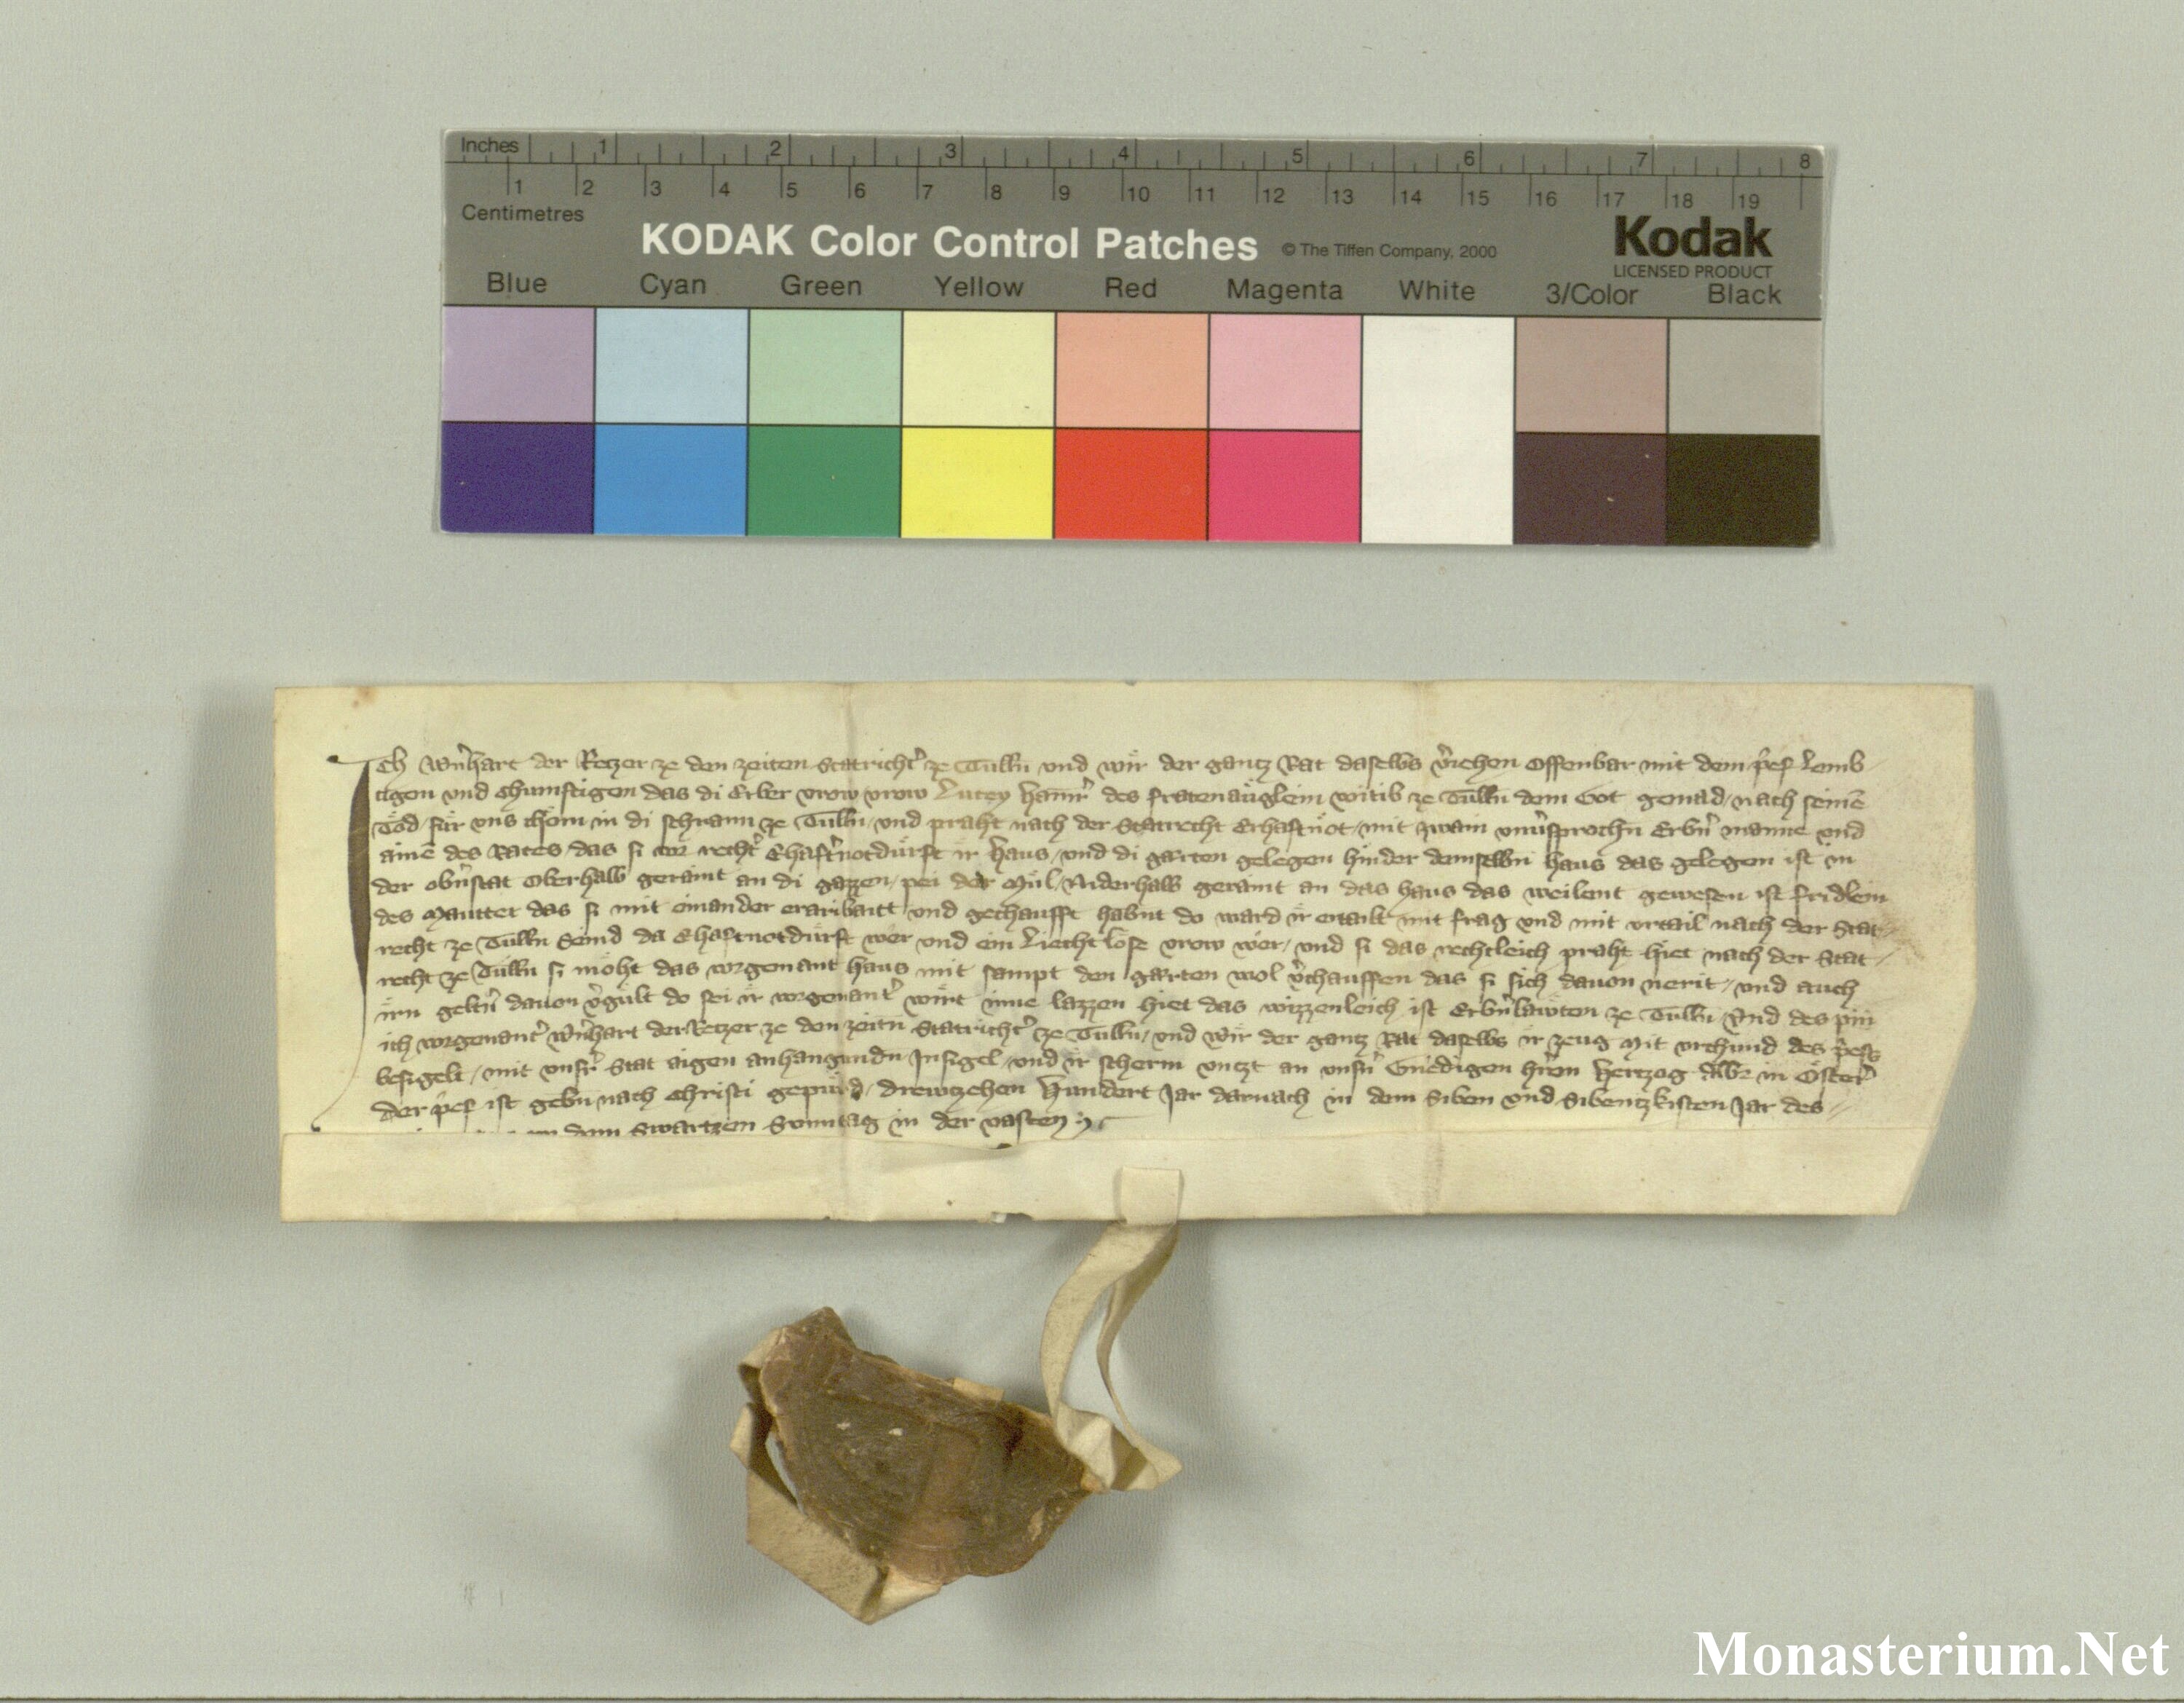 Inches 1 2 3 4 5 6 7 8
1 2 3 4 5 6 7 8 9 10 11 12 13 14 15 16 17 18 19
Centimetres
KODAK Color Control Patches © The Tiffen Company, 2000 Kodak
LICENSED PRODUCT
Blue Cyan Green Yellow Red Magenta White 3/Color Black
Ich Wernhart der Retzer ze den zeiten Statricht' ze Tulln und wir der gantz Rat daselbs v'iehen Offenbar mit dem p'ef Lemb
tigen und chumftigen das di Erber vrow vrow Lucey des witib ze Tulln dem Got genad / nach seinē
Tod / für uns chom in di schrann ze Tulln / und praht nach der Statrecht Erhaftnot / mit zwain Erbn' manne und
ainē des Rates / das si vor recht' Ehaft'notdürft ir haus / und di garten gelegen hinder demselbn haus das gelegen ist in
der obn'stat Oberhalb geraint an di gazzen / pei der Mül / Niderhalb geraint an das haus das weilent gewesen ist fridlein
des Mautter das si mit einander eraribaitt und gechaufft habnt do ward ir ertailt mit frag und mit urtail nach der Stat
recht ze Tulln Seind da Ehaftnotdürft wer und ein Liecht lose vrow wer / und si das rechtleich praht hiet nach der Stat
recht ze Tulln si möht das vorgenant haus mit sampt den garten wol v'chauffen das si sich dauon nerit / und auch
irn geltn' dauon v'gult do sei ir vorgenant' wirt inne lazzen hiet das wizzenleich ist Erbn' lawten ze Tulln Vnd des pin
ich vorgenant' Wn'hart der Retzer ze den zeitn Statricht' ze Tulln / und wir der gantz Rat daselbs ir zeug Mit urchund des p'efs
besigelt / mit unsr' Stat aigen anhangundn Insigel / und ir scherm unczt an unsn' Gnedigen h'ren Hertzog Albr in Öster'
der p'ef ist gebn nach Christi gepurd / drewtzehen Hundert Jar darnach in dem Siben und Sibentzkisten Jar des
dem Swartzen Sunntag in der vasten
Monasterium.Net